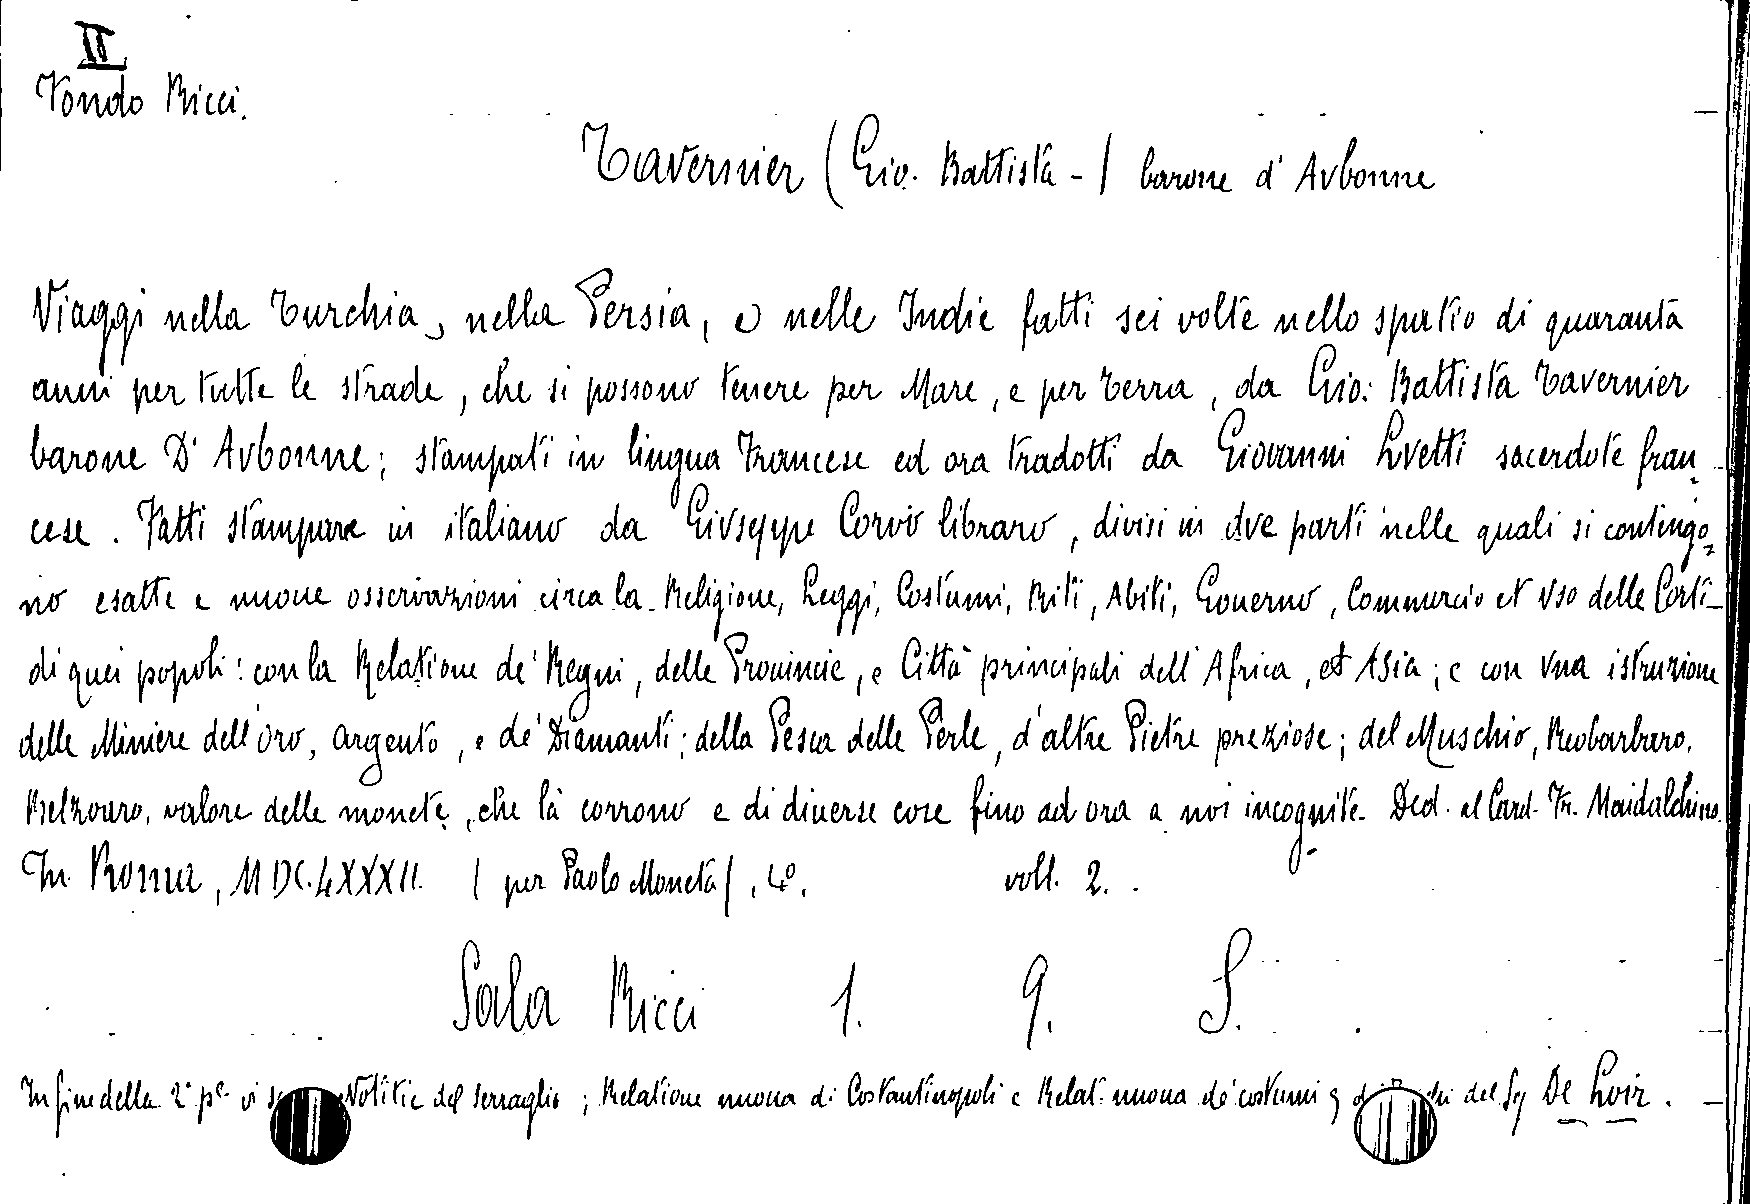 II
Fondo Ricci.
Tavernier (Gio. Battista -) barone d'Avbonne
Viaggi nella Turchia, nella Persia, e nelle Indie fatti sei volte nello spatio di quaranta
anni per tutte le strade, che si possono tenere per Mare, e per terra, da Gio: Battista Tavernier
barone D'Avbonne; stampati in lingua Francese ed ora tradotti da Giovanni Lvetti sacerdote fran-
cese. Fatti stampare in italiano da Givseppe Corvo libraro, divisi in dve parti nelle quali si contingo=
no esatte e nuoue osseruazioni circa la Religione, Leggi, Costumi, Riti, Abiti, Gouerno, Commercio et vso delle Corti
di quei popoli: con la Relatione de' Regni, delle Prouincie, e Città principali dell'Africa, et Asia; e con vna istruzione
delle Miniere dell'oro, argento, e de' Diamanti; della Pesca delle Perle, d'altre Pietre preziose; del Muschio, Reobarbaro,
Belzouro, valore delle monete, che là corrono e di diuerse cose fino ad ora a noi incognite. Ded. al Card. Fr. Maidalchino.
In Roma, MDC.LXXXII. (per Paolo Moneta), 4°. voll. 2.
Sala Ricci 1. 9. S.
In fine della 2ª pe. vi Notitie del serraglio; Relatione nuoua di Costantinopoli e Relat. nuoua de' costumi del Sg De Loir.